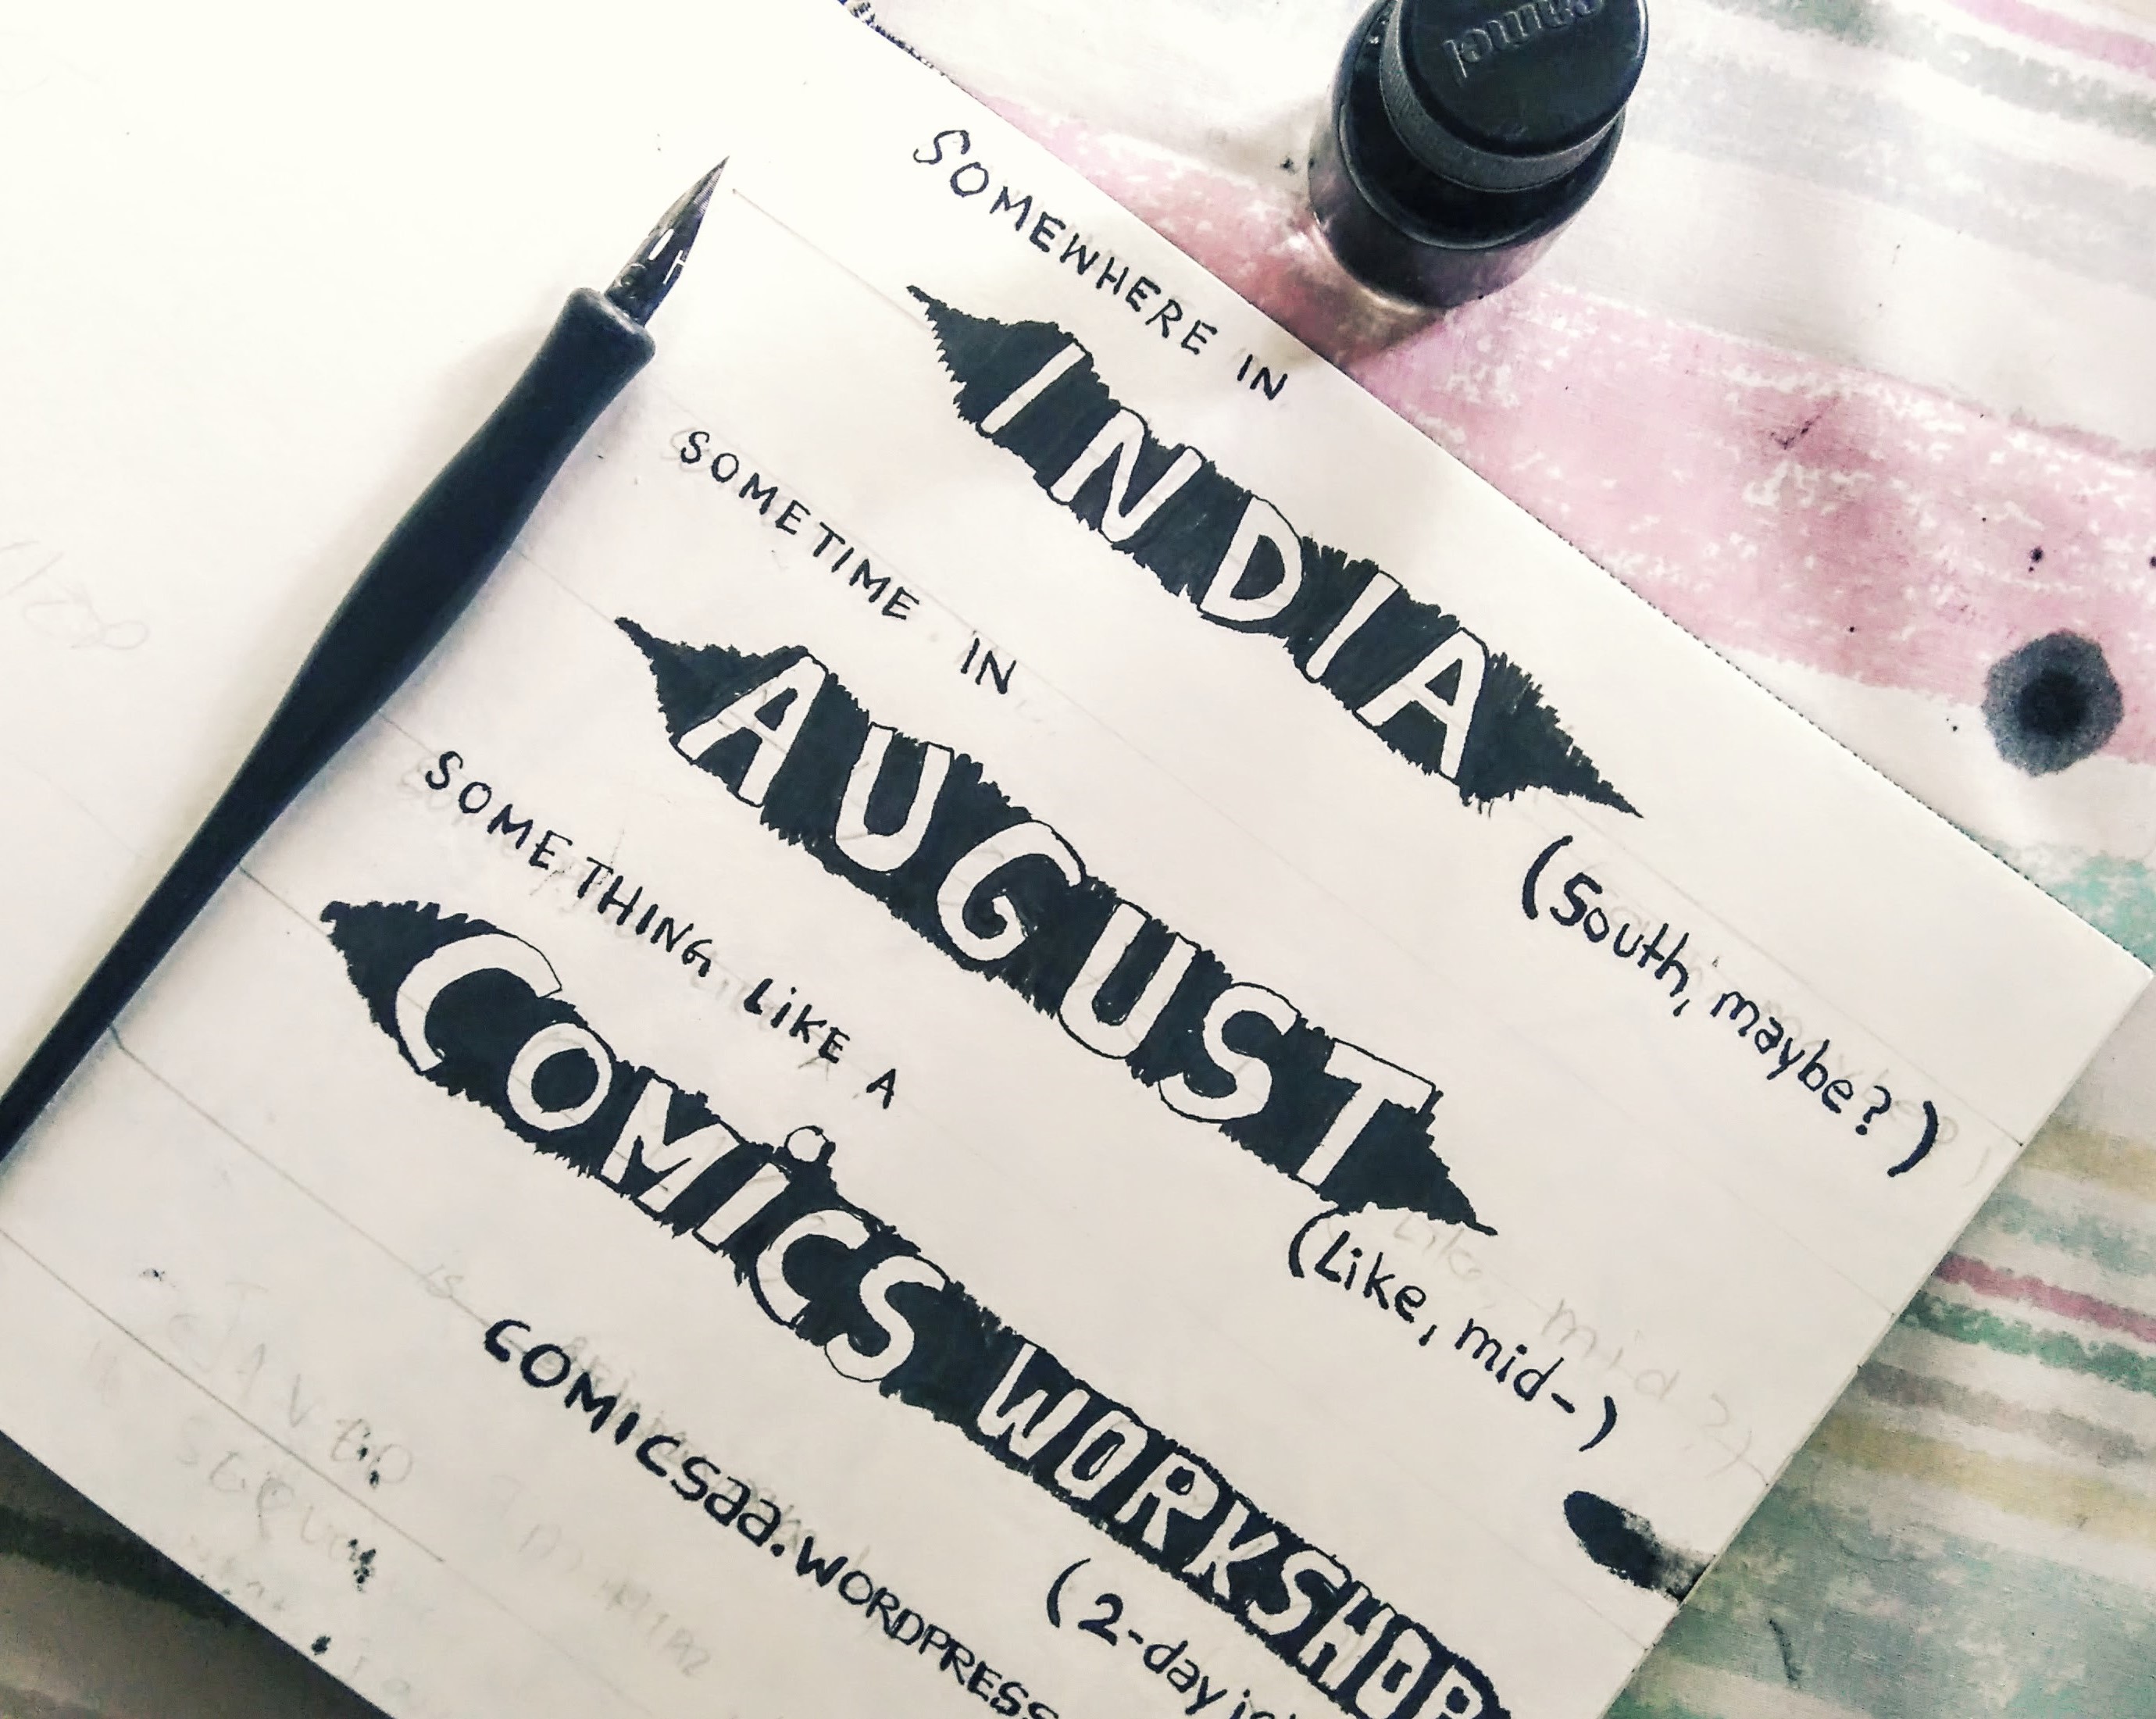 camel
SOMEWHERE IN
INDIA
(South, maybe?)
SOMETIME IN
AUGUST
(Like, mid-)
SOMETHING LIKE A
COMICS WORKSHOP
(2-day
COMICSaa.WORDPRESS